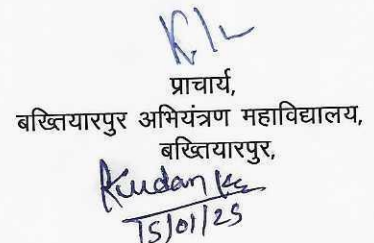 प्राचार्य,
बख्तियारपुर अभियंत्रण महाविद्यालय,
बख्तियारपुर,
Kundan
15/01/25